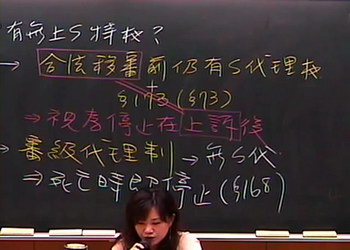 有無上S特權?
→ 合法移審前仍有S代理權
§173(§73)
⇒視為停止在上訴後
→審級代理制→無S代
⇒死亡時即停止(§168)